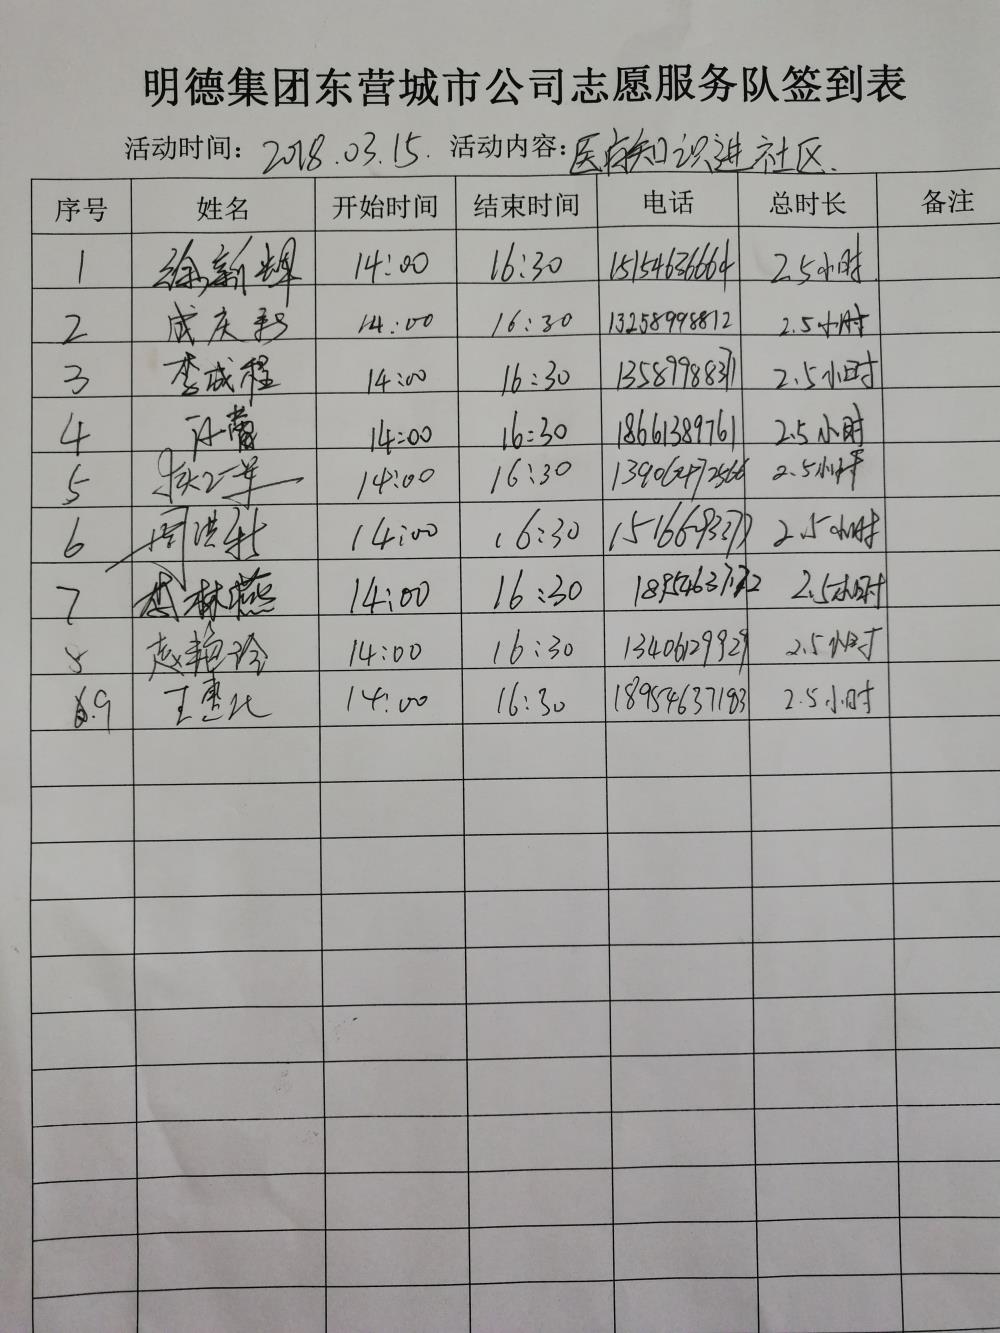 明德集团东营城市公司志愿服务队签到表
活动时间：2018.03.15. 活动内容：医疗知识进社区.
序号 姓名 开始时间 结束时间 电话 总时长 备注
1 徐新辉 14:00 16:30 15154636664 2.5小时
2 成庆 14:00 16:30 13258998812 2.5小时
3 李成程 14:00 16:30 2.5小时
4 14:00 16:30 18661389761 2.5小时
5 14:00 16:30 2.5小时
6 周洪 14:00 16:30 2.5小时
7 林燕 14:00 16:30 2.5小时
8 赵艳玲 14:00 16:30 13406129929 2.5小时
9 王惠 14:00 16:30 18954637183 2.5小时